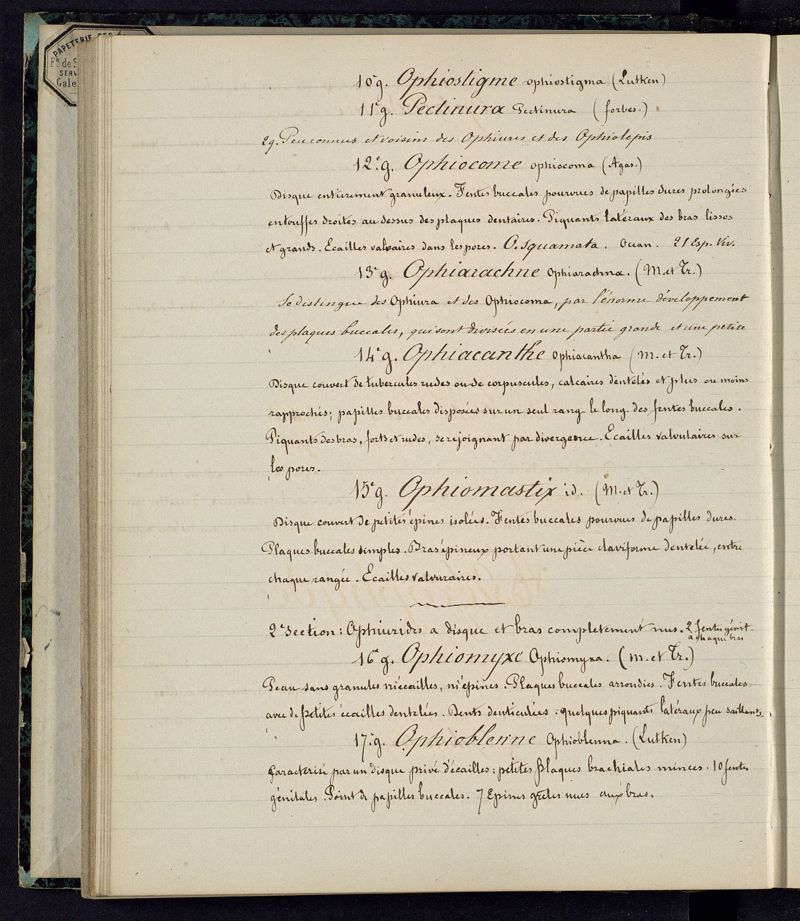 PAPETERIE DES
Fg de S
SERV
Gale
10e g. Ophiostigme ophiostigma (Lutken)
11e g. Pectinura Pectinura (forbes.)
2 g. Peu connus et voisins des Ophiures et des Ophiolepis
12e g. Ophiocome ophiocoma (Agas.)
Disque entièrement granuleux. Fentes buccales pourvues de papilles dures prolongées
en touffes droites au dessus des plaques dentaires. Piquants latéraux des bras lisses
et grands. Ecailles valvaires dans les pores. O. squamata. Ocean. 21 Esp. Viv.
13e g. Ophiarachne Ophiarachna. (M. et Tr.)
Se distingue des Ophiura et des Ophiocoma, par l'énorme développement
des plaques buccales, qui sont divisées en une partie grande et une petite
14e g. Ophiacanthe Ophiacantha (M. et Tr.)
Disque couvert de tubercules rudes ou de corpuscules, calcaires dentelés et plus ou moins
rapprochés; papilles buccales disposées sur un seul rang le long des fentes buccales.
Piquants des bras, forts et rudes, se rejoignant par divergence. Ecailles valvulaires sur
les pores.
15e g. Ophiomastix id. (M. et Tr.)
Disque couvert de petites épines isolées. Fentes buccales pourvues de papilles dures.
Plaques buccales simples. Bras épineux portant une pièce claviforme dentelée, entre
chaque rangée. Ecailles valvuraires.
2e Section: Ophiurides a disque et bras completement nus. 2 fentes génit.
a chaque bras
16e g. Ophiomyxe Ophiomyxa. (M. et Tr.)
Peau sans granules ni écailles, ni épines. Plaques buccales arrondies. Fentes buccales
avec de petites écailles dentelées. Dents denticulées: quelques piquants latéraux peu saillants.
17e g. Ophioblenne Ophioblenna. (Lutken)
Caracterisé par un disque privé d'écailles: petites plaques brachiales minces. 10 fentes
génitales. Point de papilles buccales. 7 Epines grêles nues aux bras.